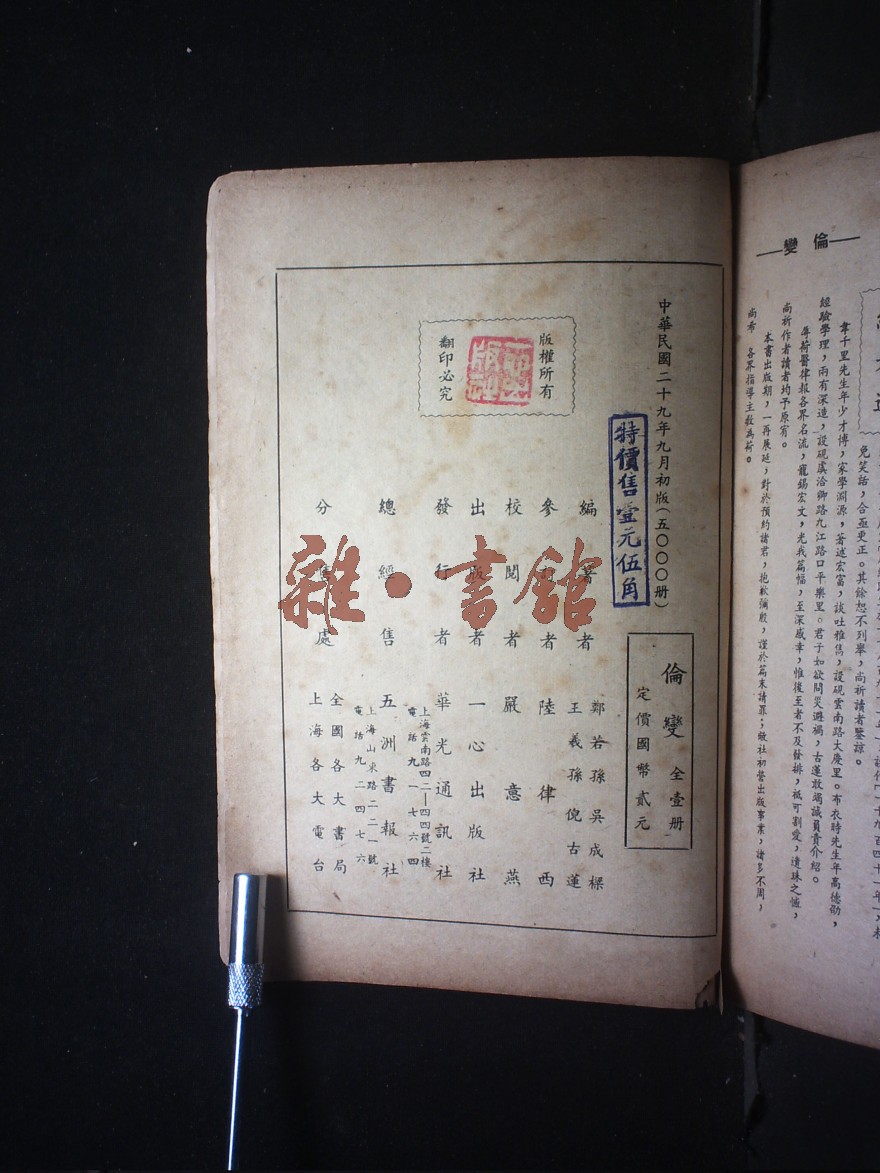 倫變
免笑話，合亟更正。其餘恕不列舉，尚祈讀者鑒諒。
韋千里先生年少才博，家學淵源，著述宏富，談吐雅雋，設硯雲南路大慶里。布衣時先生年高德劭，
經驗學理，兩有深造，設硯虞洽卿路九江路口平樂里。君子如欲問災避禍，古蓮敢竭誠負責介紹。
辱荷醫律報各界名流，寵錫宏文，光我篇幅，至深感幸，惟後至者不及發排，祗可割愛，遺珠之憾，
尚祈作者讀者均予原宥。
本書出版期，一再展延，對於預約諸君，抱歉彌殷，謹於篇末請罪；敝社初營出版事業，諸多不周，
尚希 各界指導主教為荷。
中華民國二十九年九月初版(五〇〇〇册)
特價售壹元伍角
倫變 全壹册
定價國幣貳元
版權所有
翻印必究
編著者 鄭若孫 吳成樑
王義孫 倪古蓮
參訂者 陸律西
校閱者 嚴意燕
出版者 一心出版社
發行者 華光通訊社
上海雲南路四二—四四號二樓
電話九一七六四
總經售 五洲書報社
上海山東路二二一號
電話九二四七六
分售處 全國各大書局
上海各大電台
雜·書館